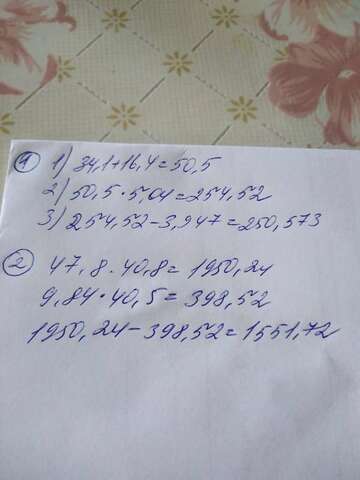 1 1) 34,1+16,4=50,5
2) 50,5·5,04=254,52
3) 254,52-3,947=250,573
2 47,8·40,8=1950,24
9,84·40,5=398,52
1950,24-398,52=1551,72